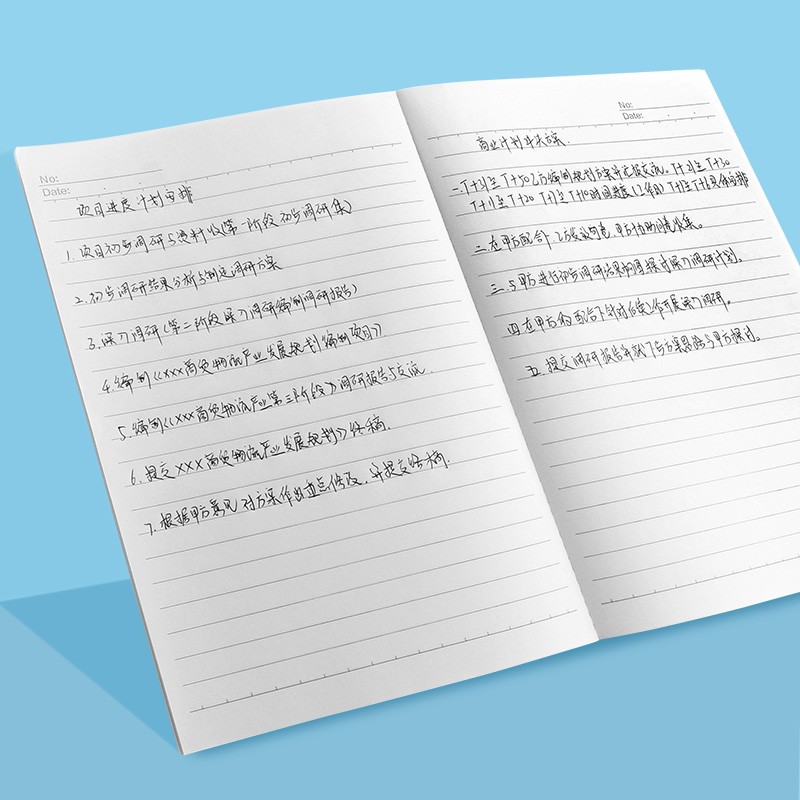 No:
Date:
项目进度计划安排
1.项目初步调研与资料收(第一阶段初步调研集)
2.初步调研结果分析与制定调研方案
3.深入调研(第二阶段深入调研编制调研报告)
4.编制《XXX商贸物流产业发展规划编制项目》
5.编制《XXX商贸物流产业第三阶段》调研报告与交流
6.提交XXX商贸物流产业发展规划》终稿.
7.根据甲方意见对方案作出重点修改,并提交终稿.
No:
Date:
商业计划 方案.
一.T+31至T+50乙方编制规划方案并 提交 。T+21至T+30
T+11至T+20 T+1至T+10时间进度(2个月) T+1至T+ 具体安排
二.在甲方配合下 ,甲方协助 收集。
三.与甲方进行初步调研结果 探讨深入调研计划.
四.在甲方的配合下针对后续工作开展深入调研.
五.提交调研报告并就下与方案思路与甲方探讨。